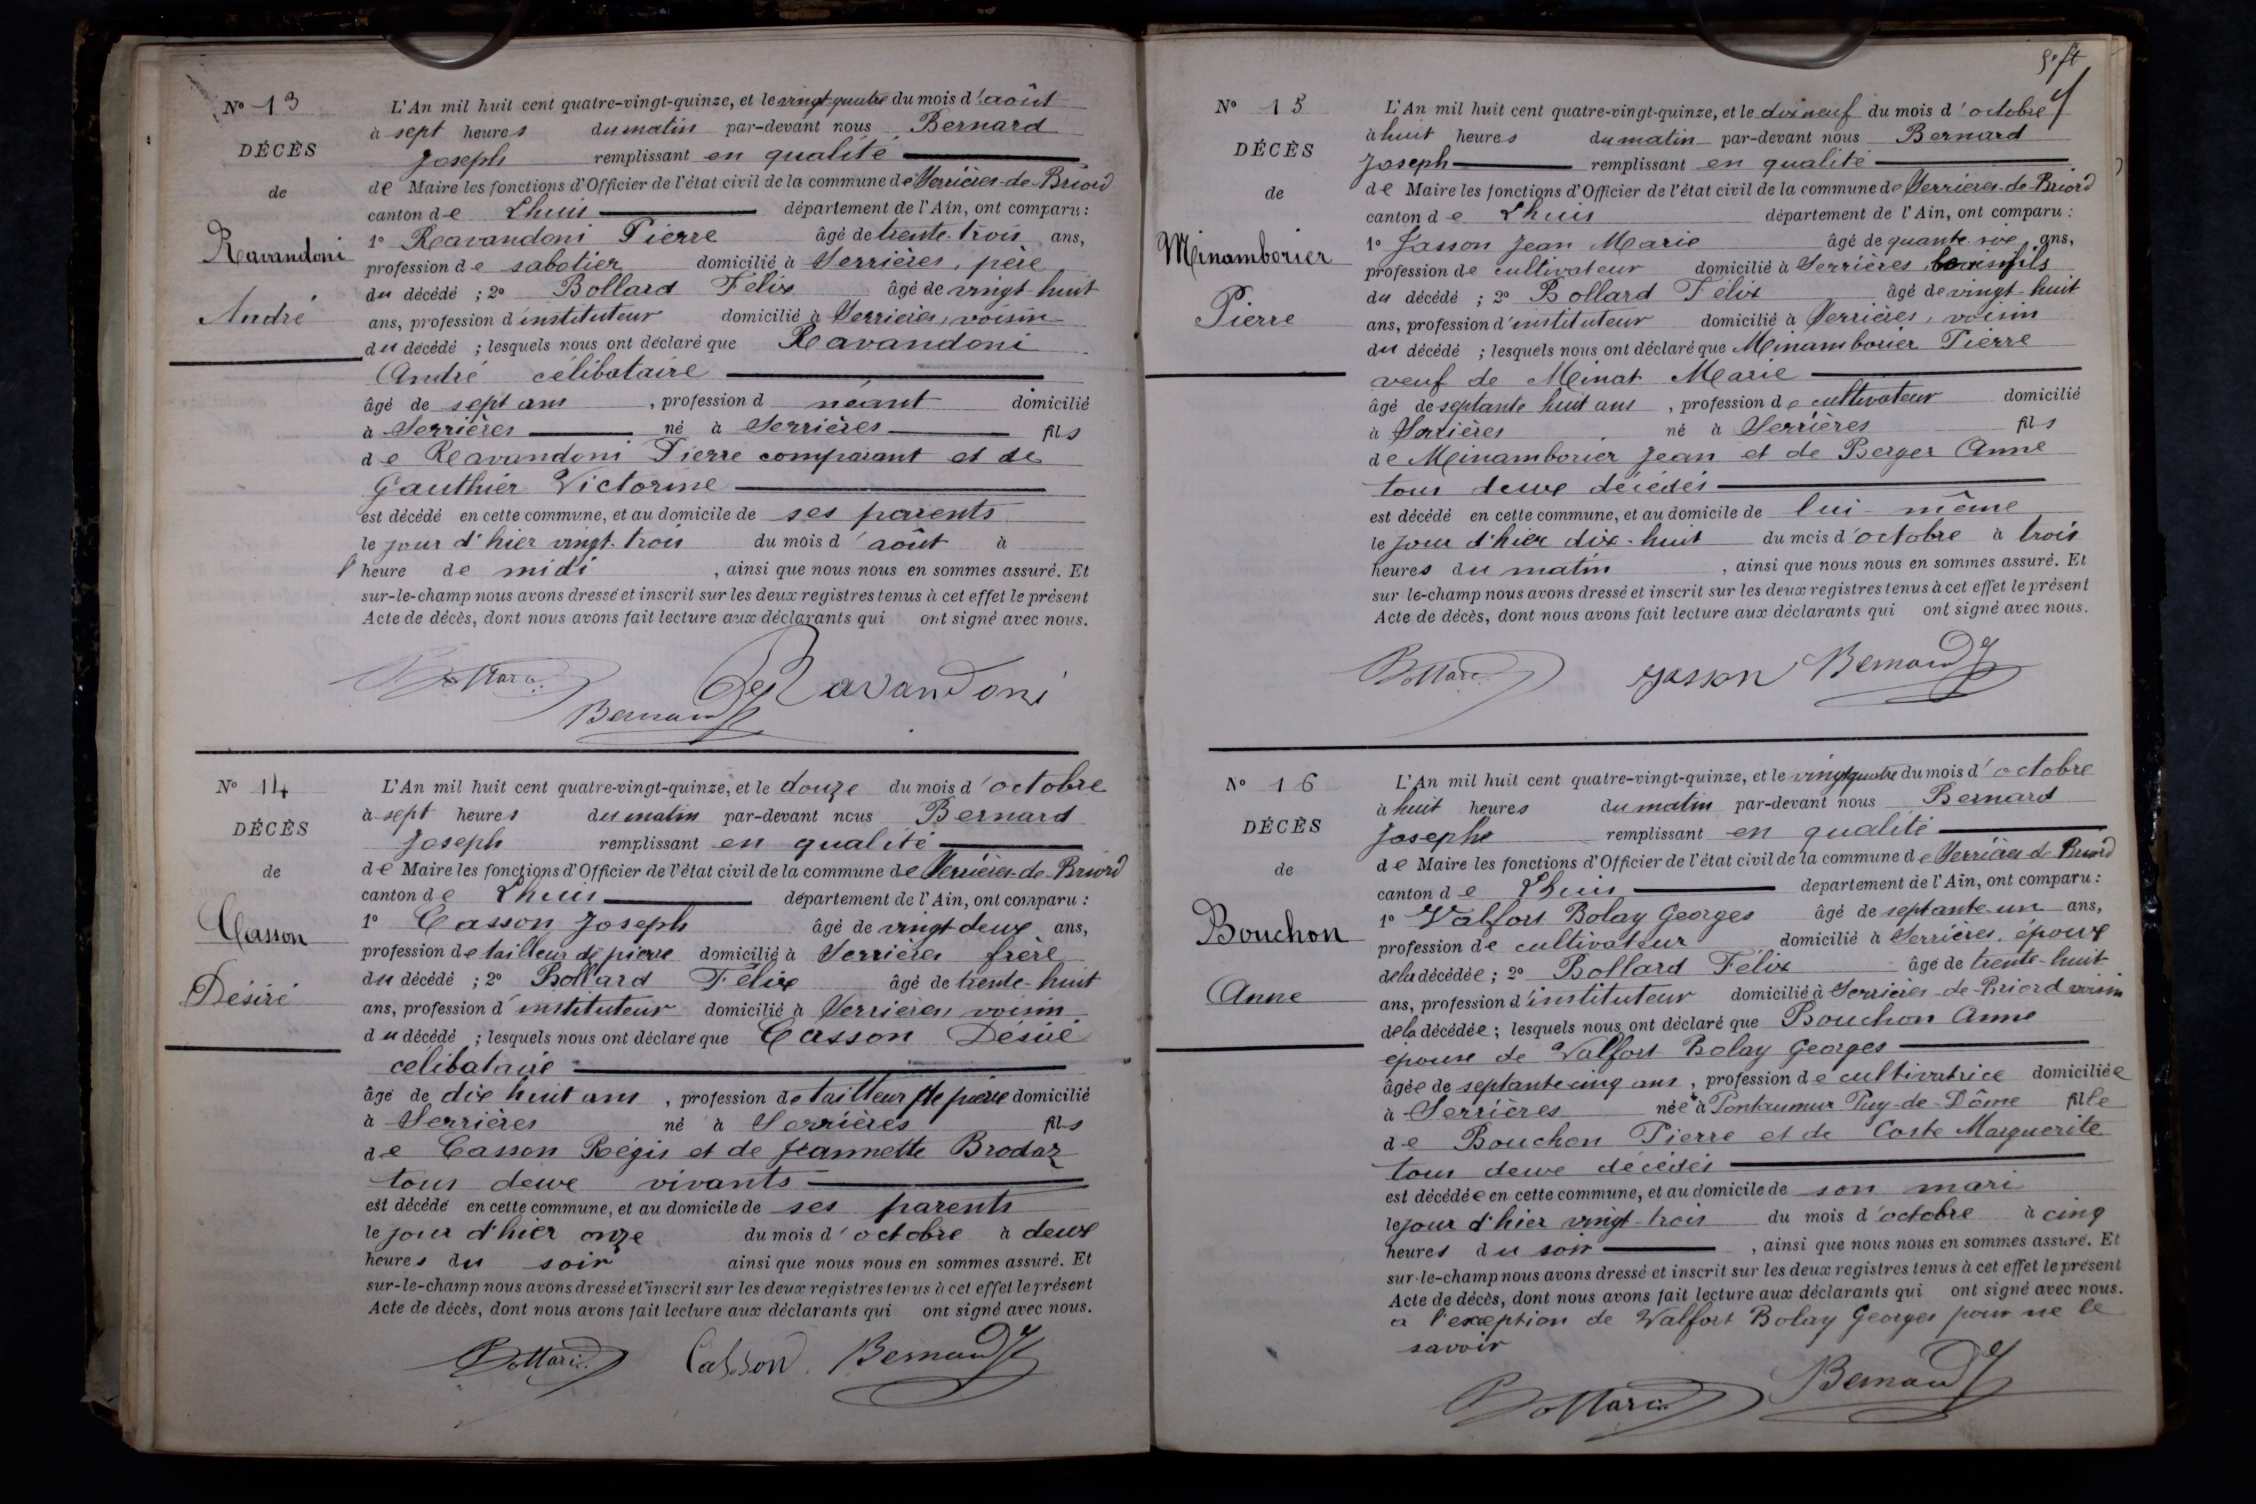 N° 13
DÉCÈS
de
Ravandoni
André
L'An mil huit cent quatre-vingt-quinze, et le vingt-quatre du mois d'août
à sept heures du matin par-devant nous Bernard
Joseph remplissant en qualité
de Maire les fonctions d'Officier de l'état civil de la commune de Serrières-de-Briord
canton de Lhuis département de l'Ain, ont comparu :
1° Ravandoni Pierre âgé de trente-trois ans,
profession de sabotier domicilié à Serrières, père
du décédé ; 2° Bollard Félix âgé de vingt-huit
ans, profession d'instituteur domicilié à Serrières, voisin
du décédé ; lesquels nous ont déclaré que Ravandoni
André célibataire
âgé de sept ans , profession d néant domicilié
à Serrières né à Serrières fils
de Ravandoni Pierre comparant et de
Gauthier Victorine
est décédé en cette commune, et au domicile de ses parents
le jour d'hier vingt-trois du mois d'août à
l'heure de midi , ainsi que nous nous en sommes assuré. Et
sur-le-champ nous avons dressé et inscrit sur les deux registres tenus à cet effet le présent
Acte de décès, dont nous avons fait lecture aux déclarants qui ont signé avec nous.
Bollard Ravandoni
Bernard J
N° 14
DÉCÈS
de
Casson
Désiré
L'An mil huit cent quatre-vingt-quinze, et le douze du mois d'octobre
à sept heures du matin par-devant nous Bernard
Joseph remplissant en qualité
de Maire les fonctions d'Officier de l'état civil de la commune de Serrières-de-Briord
canton de Lhuis département de l'Ain, ont comparu :
1° Casson Joseph âgé de vingt deux ans,
profession de tailleur de pierre domicilié à Serrières frère
du décédé ; 2° Bollard Félix âgé de trente-huit
ans, profession d'instituteur domicilié à Serrières voisin
du décédé ; lesquels nous ont déclaré que Casson Désiré
célibataire
âgé de dix huit ans , profession de tailleur de pierre domicilié
à Serrières né à Serrières fils
de Casson Régis et de Jeannette Brodaz
tous deux vivants
est décédé en cette commune, et au domicile de ses parents
le jour d'hier onze du mois d'octobre à deux
heures du soir ainsi que nous nous en sommes assuré. Et
sur-le-champ nous avons dressé et inscrit sur les deux registres tenus à cet effet le présent
Acte de décès, dont nous avons fait lecture aux déclarants qui ont signé avec nous.
Bollard Casson Bernard J
sept
N° 15
DÉCÈS
de
Minamborier
Pierre
L'An mil huit cent quatre-vingt-quinze, et le dix neuf du mois d'octobre
à huit heures du matin par-devant nous Bernard
Joseph remplissant en qualité
de Maire les fonctions d'Officier de l'état civil de la commune de Serrières-de-Briord
canton de Lhuis département de l'Ain, ont comparu :
1° Jasson Jean Marie âgé de quante-six ans,
profession de cultivateur domicilié à Serrières, beau-fils
du décédé ; 2° Bollard Félix âgé de vingt-huit
ans, profession d'instituteur domicilié à Serrières, voisin
du décédé ; lesquels nous ont déclaré que Minamborier Pierre
veuf de Minat Marie
âgé de septante huit ans , profession de cultivateur domicilié
à Serrières né à Serrières fils
de Minamborier Jean et de Berger Anne
tous deux décédés
est décédé en cette commune, et au domicile de lui-même
le jour d'hier dix-huit du mois d'octobre à trois
heures du matin , ainsi que nous nous en sommes assuré. Et
sur-le-champ nous avons dressé et inscrit sur les deux registres tenus à cet effet le présent
Acte de décès, dont nous avons fait lecture aux déclarants qui ont signé avec nous.
Bollard Jasson Bernard J
N° 16
DÉCÈS
de
Bouchon
Anne
L'An mil huit cent quatre-vingt-quinze, et le vingt quatre du mois d'octobre
à huit heures du matin par-devant nous Bernard
Joseph remplissant en qualité
de Maire les fonctions d'Officier de l'état civil de la commune de Serrières-de-Briord
canton de Lhuis département de l'Ain, ont comparu :
1° Valfort Bolay Georges âgé de septante-un ans,
profession de cultivateur domicilié à Serrières, époux
de la décédée ; 2° Bollard Félix âgé de trente-huit
ans, profession d'instituteur domicilié à Serrières-de-Briord voisin
de la décédée ; lesquels nous ont déclaré que Bouchon Anne
épouse de Valfort Bolay Georges
âgée de septante cinq ans , profession de cultivatrice domiciliée
à Serrières née à Pontaumur Puy-de-Dôme fille
de Bouchon Pierre et de Coste Marguerite
tous deux décédés
est décédée en cette commune, et au domicile de son mari
le jour d'hier vingt-trois du mois d'octobre à cinq
heures du soir , ainsi que nous nous en sommes assuré. Et
sur-le-champ nous avons dressé et inscrit sur les deux registres tenus à cet effet le présent
Acte de décès, dont nous avons fait lecture aux déclarants qui ont signé avec nous.
à l'exception de Valfort Bolay Georges pour ne le
savoir
Bollard Bernard J